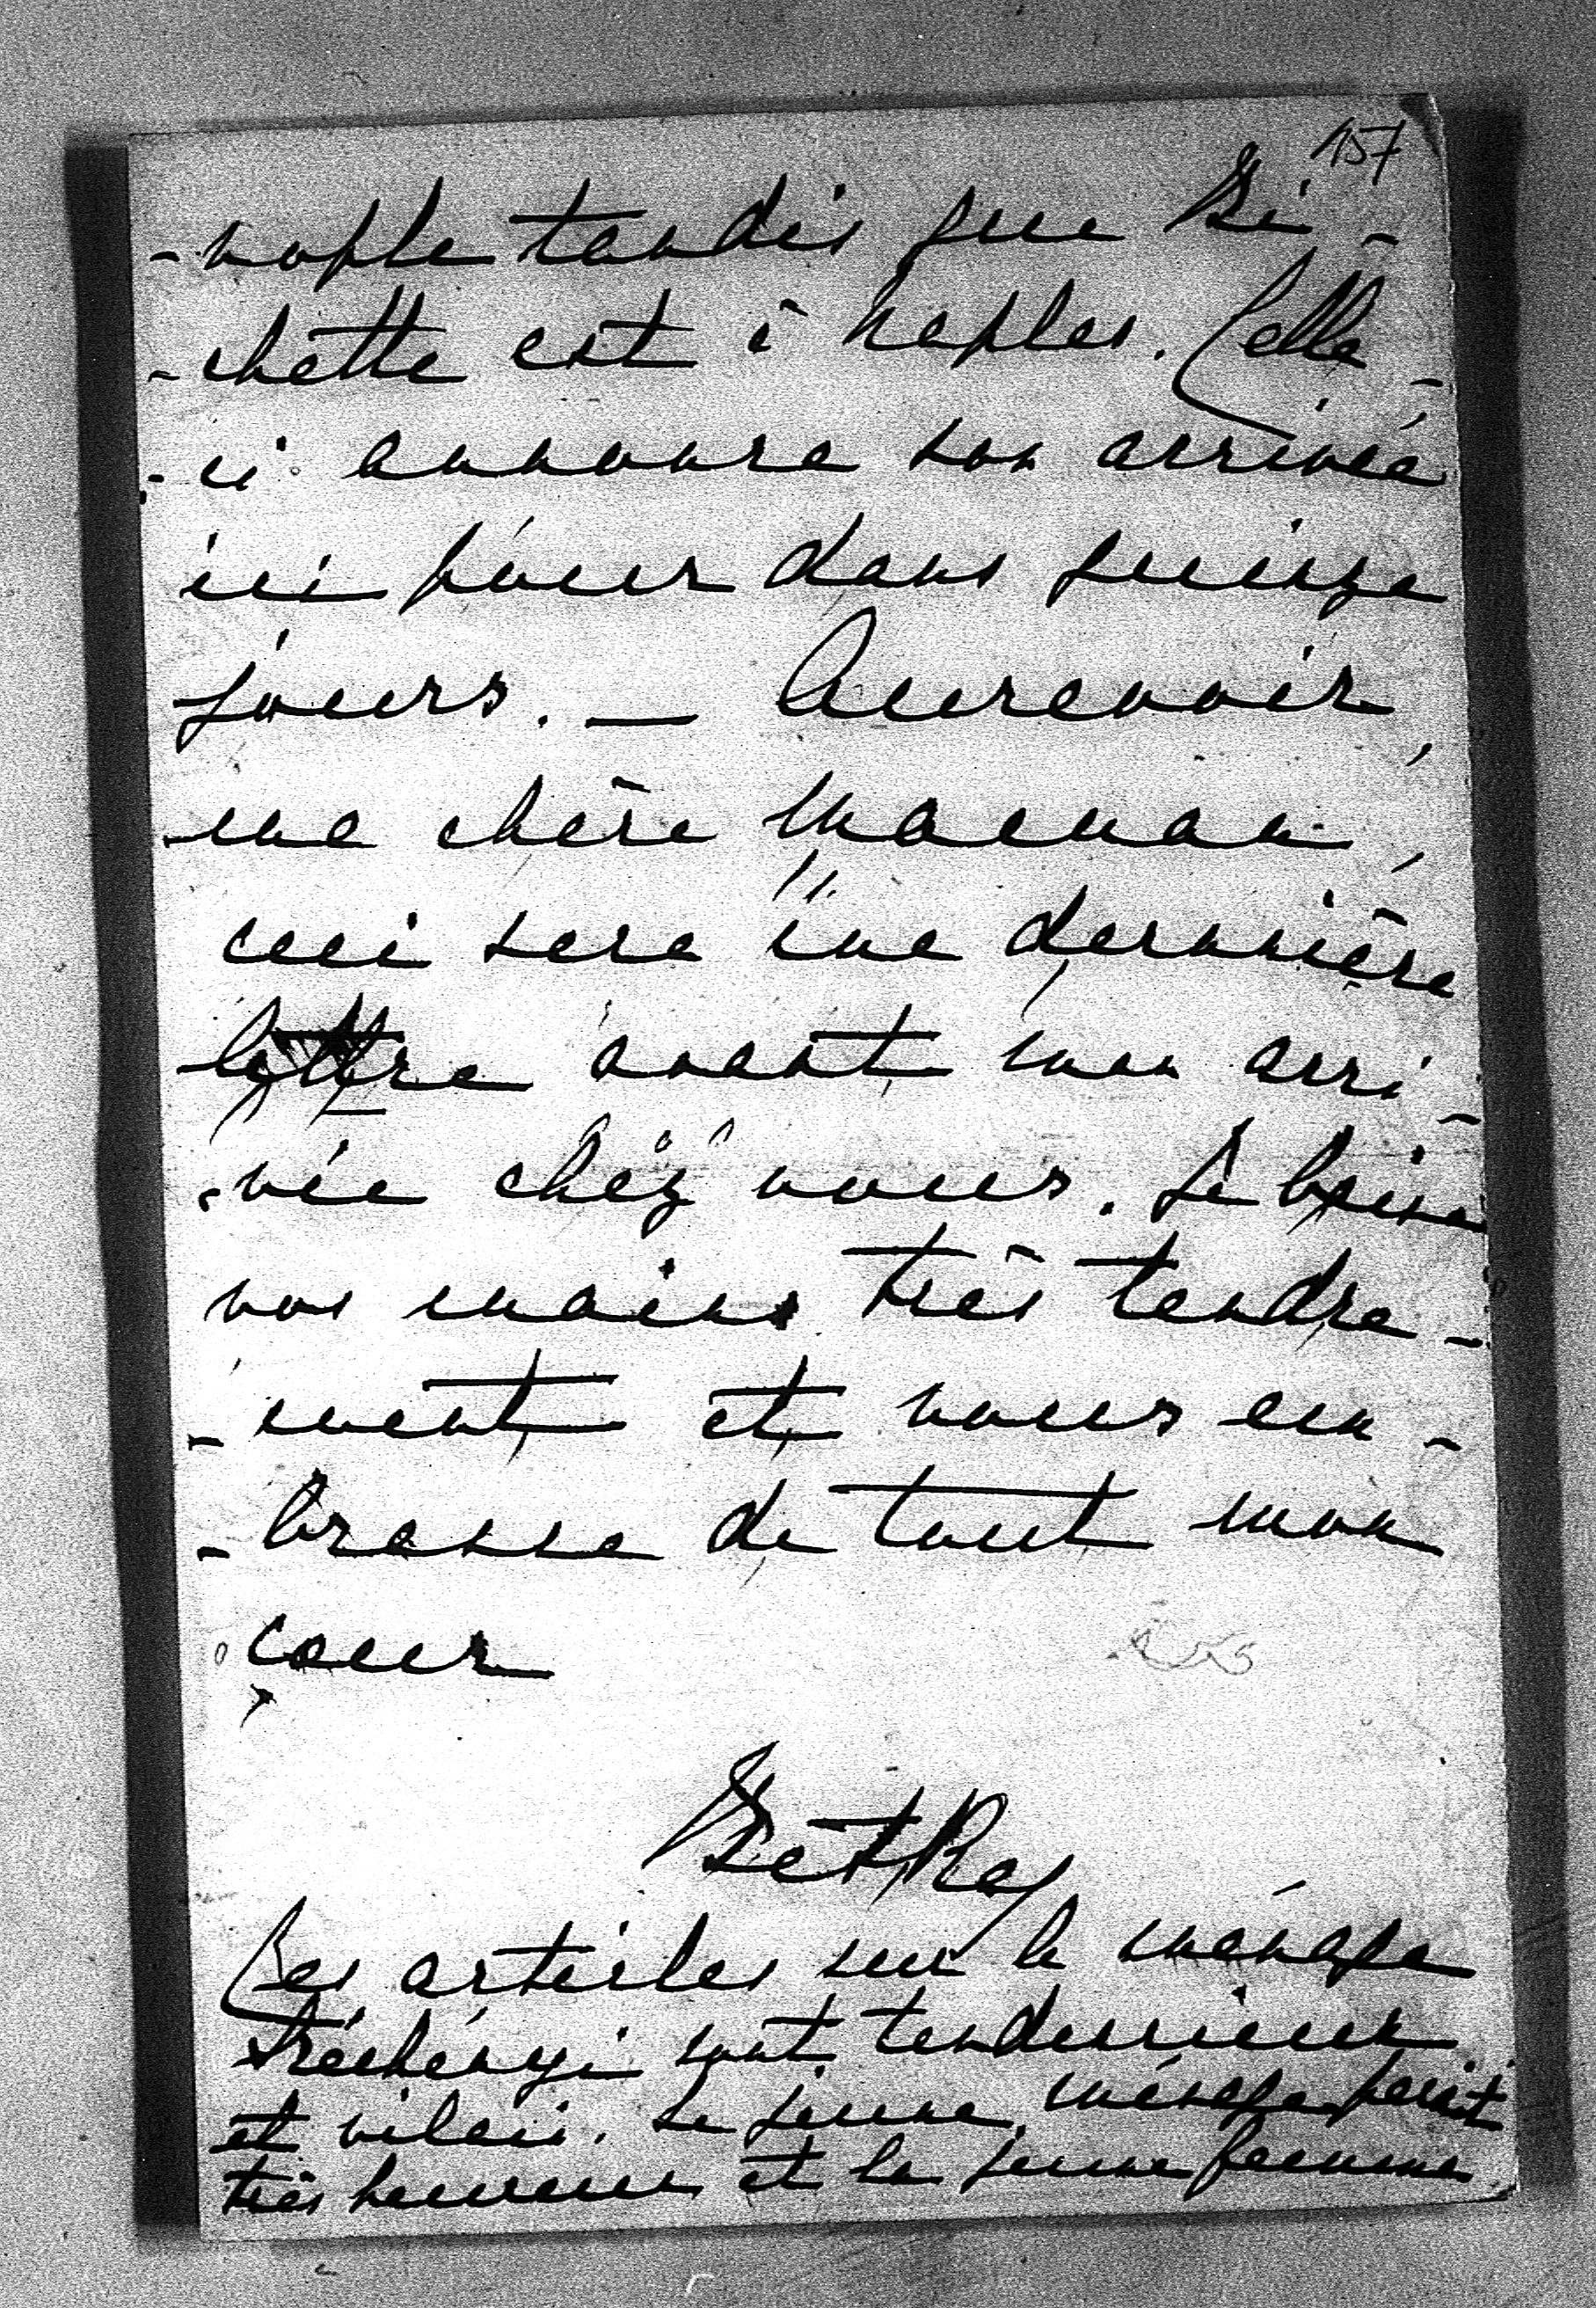 157
-nople tandis que Bi-
-chette est à Naples. Celle-
-ci annonce son arrivée
ici pour dans quinze
jours. — Aurevoir,
ma chère Maman,
ceci sera ma dernière
lettre avant mon arri-
-vée chez vous. Je baise
vos mains très tendre-
-ment et vous em-
-brasse de tout mon
coeur
Les articles sur le ménage
Széchényi sont tendencieux
et vilais. Le jeune ménage parait
très heureux et la jeune femme